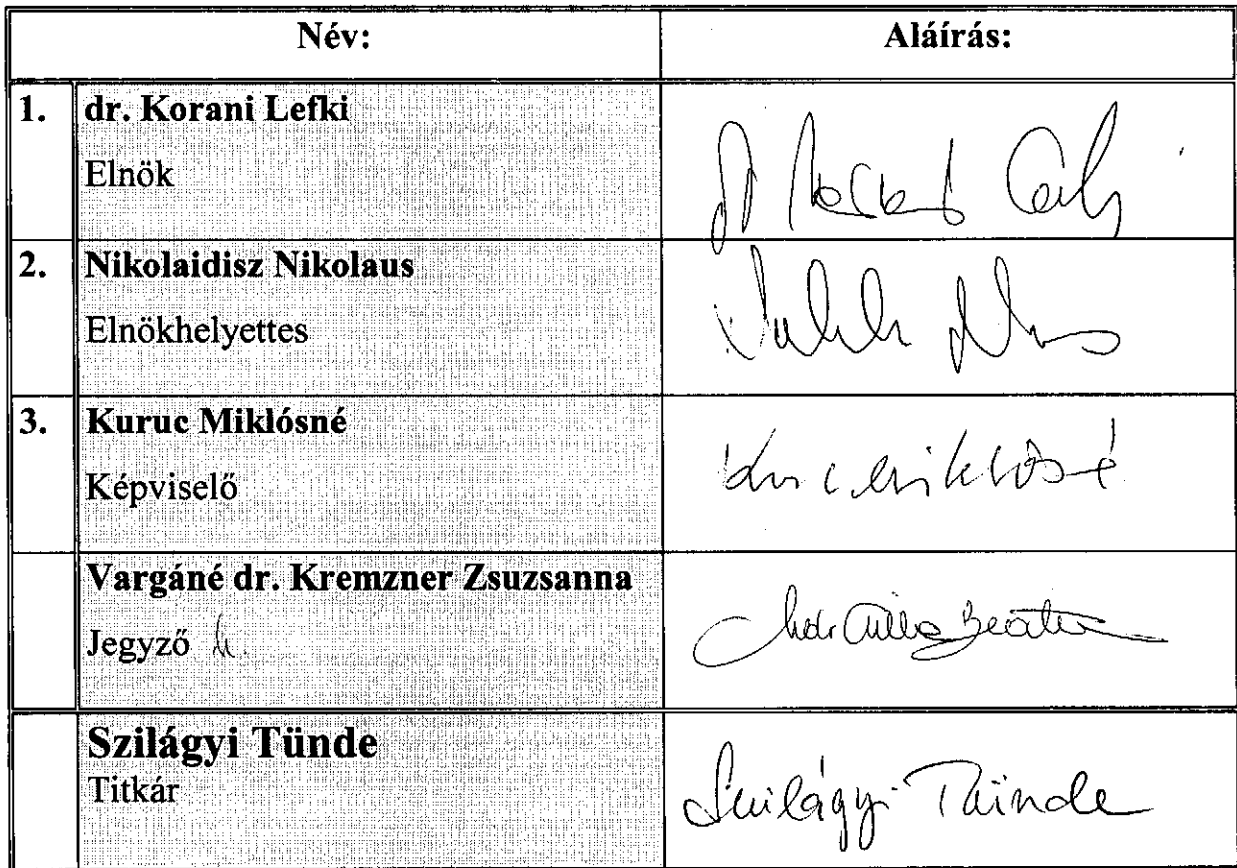 Név: Aláírás:
1. dr. Korani Lefki
Elnök
2. Nikolaidisz Nikolaus
Elnökhelyettes
3. Kuruc Miklósné
Képviselő
Vargáné dr. Kremzner Zsuzsanna
Jegyző h.
Szilágyi Tünde
Titkár Szilágyi Tünde